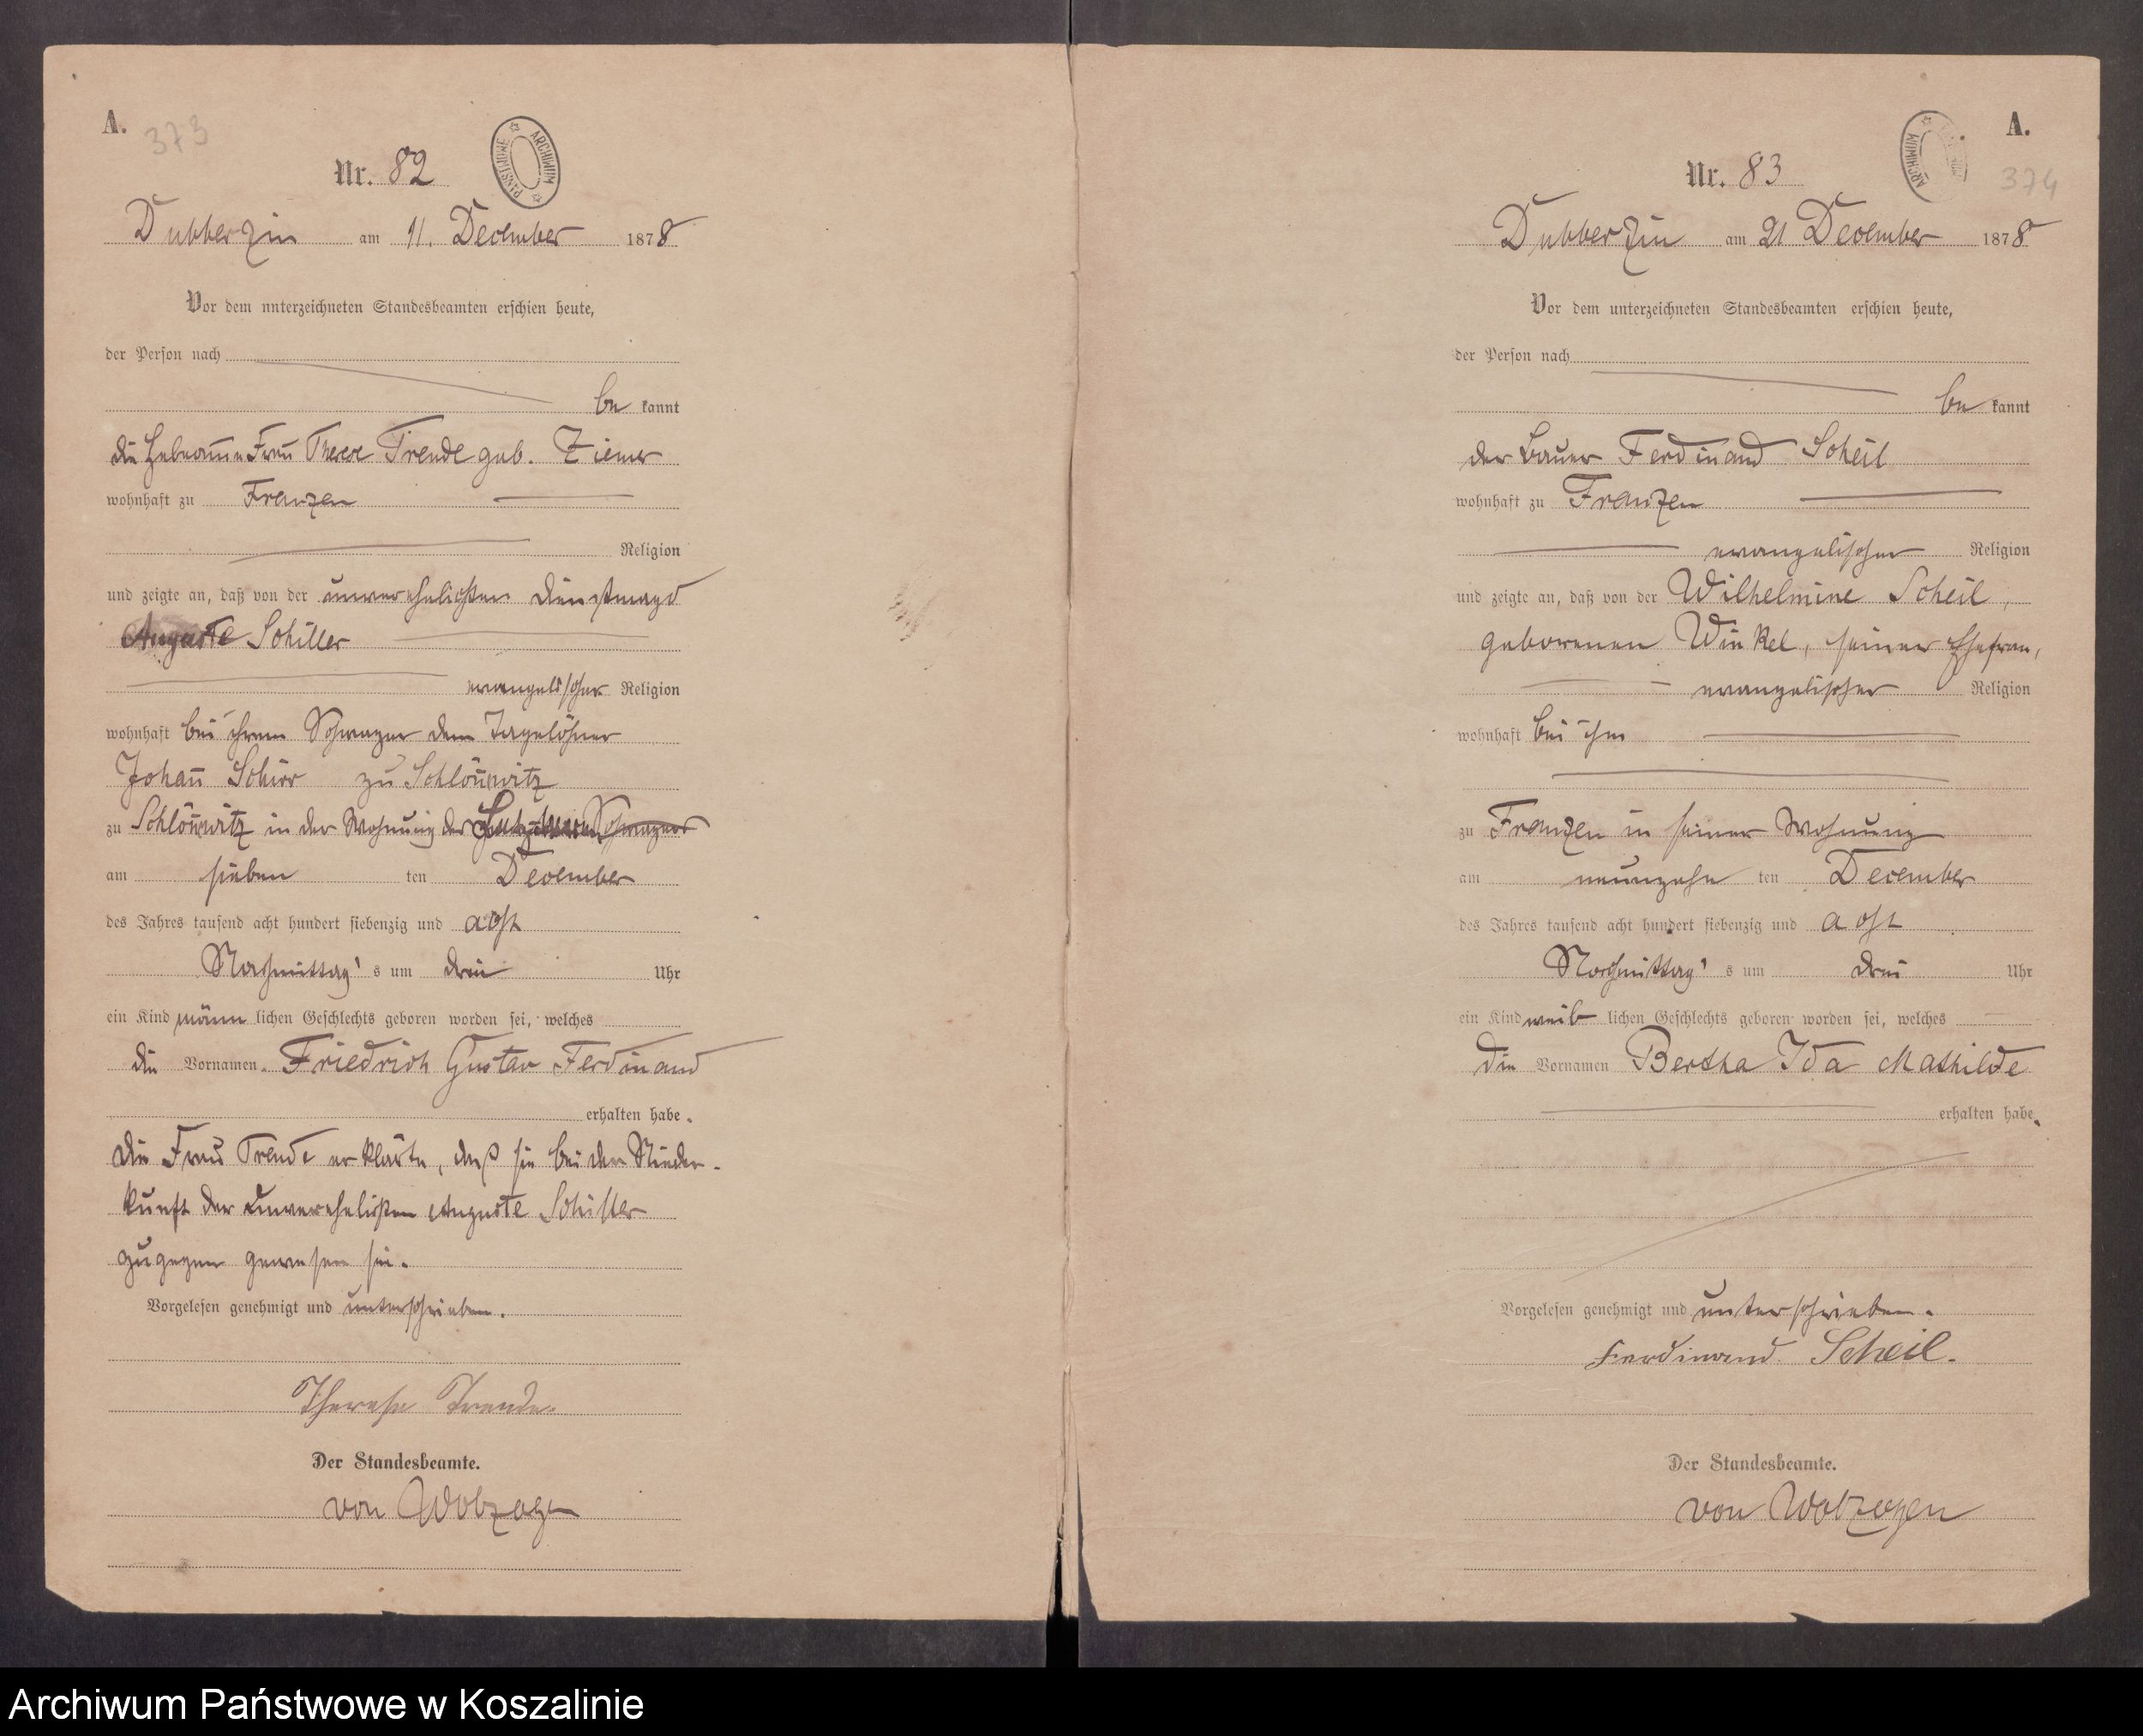 A.
373
Nr. 82
ARCHIWUM PAŃSTWOWE
Dubberzin am 11. December 1878
Vor dem unterzeichneten Standesbeamten erschien heute,
der Person nach
be kannt
die Hebeamme Frau Therese Trende geb. Ziemer
wohnhaft zu Franzen
Religion
und zeigte an, daß von der unverehelichten Dienstmagd
Auguste Schiller
evangelischer Religion
wohnhaft bei ihrem Schwager dem Tagelöhner
Johann Schirr zu Schlönnwitz
zu Schlönnwitz in der Wohnung des Schwagers
am sieben ten December
des Jahres tausend acht hundert siebenzig und acht
Nachmittag's um drei Uhr
ein Kind männ lichen Geschlechts geboren worden sei, welches
die Vornamen Friedrich Gustav Ferdinand
erhalten habe.
Die Frau Trende erklärte, daß sie bei der Nieder-
kunft der unverehelichten Auguste Schiller
zugegen gewesen sei.
Vorgelesen genehmigt und unterschrieben.
Therese Trende.
Der Standesbeamte.
von Wolzogen
A.
374
Nr. 83
ARCHIWUM
Dubberzin am 21 December 1878
Vor dem unterzeichneten Standesbeamten erschien heute,
der Person nach
be kannt
der Bauer Ferdinand Scheil
wohnhaft zu Franzen
evangelischer Religion
und zeigte an, daß von der Wilhelmine Scheil,
geborenen Winkel, seiner Ehefrau,
evangelischer Religion
wohnhaft bei ihm
zu Franzen in seiner Wohnung
am neunzehn ten December
des Jahres tausend acht hundert siebenzig und acht
Nachmittag's um drei Uhr
ein Kind weib lichen Geschlechts geboren worden sei, welches
die Vornamen Bertha Ida Mathilde
erhalten habe.
Vorgelesen genehmigt und unterschrieben.
Ferdinand Scheil.
Der Standesbeamte.
von Wolzogen
Archiwum Państwowe w Koszalinie